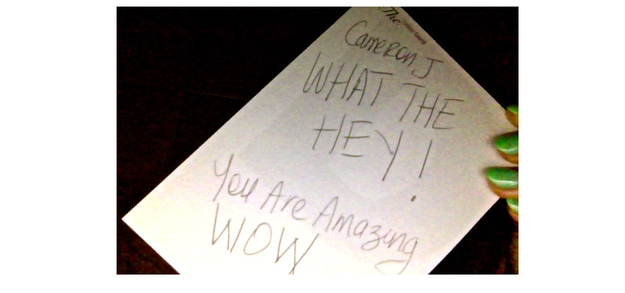 The
Cameron J
WHAT THE
HEY!
You Are Amazing
WOW